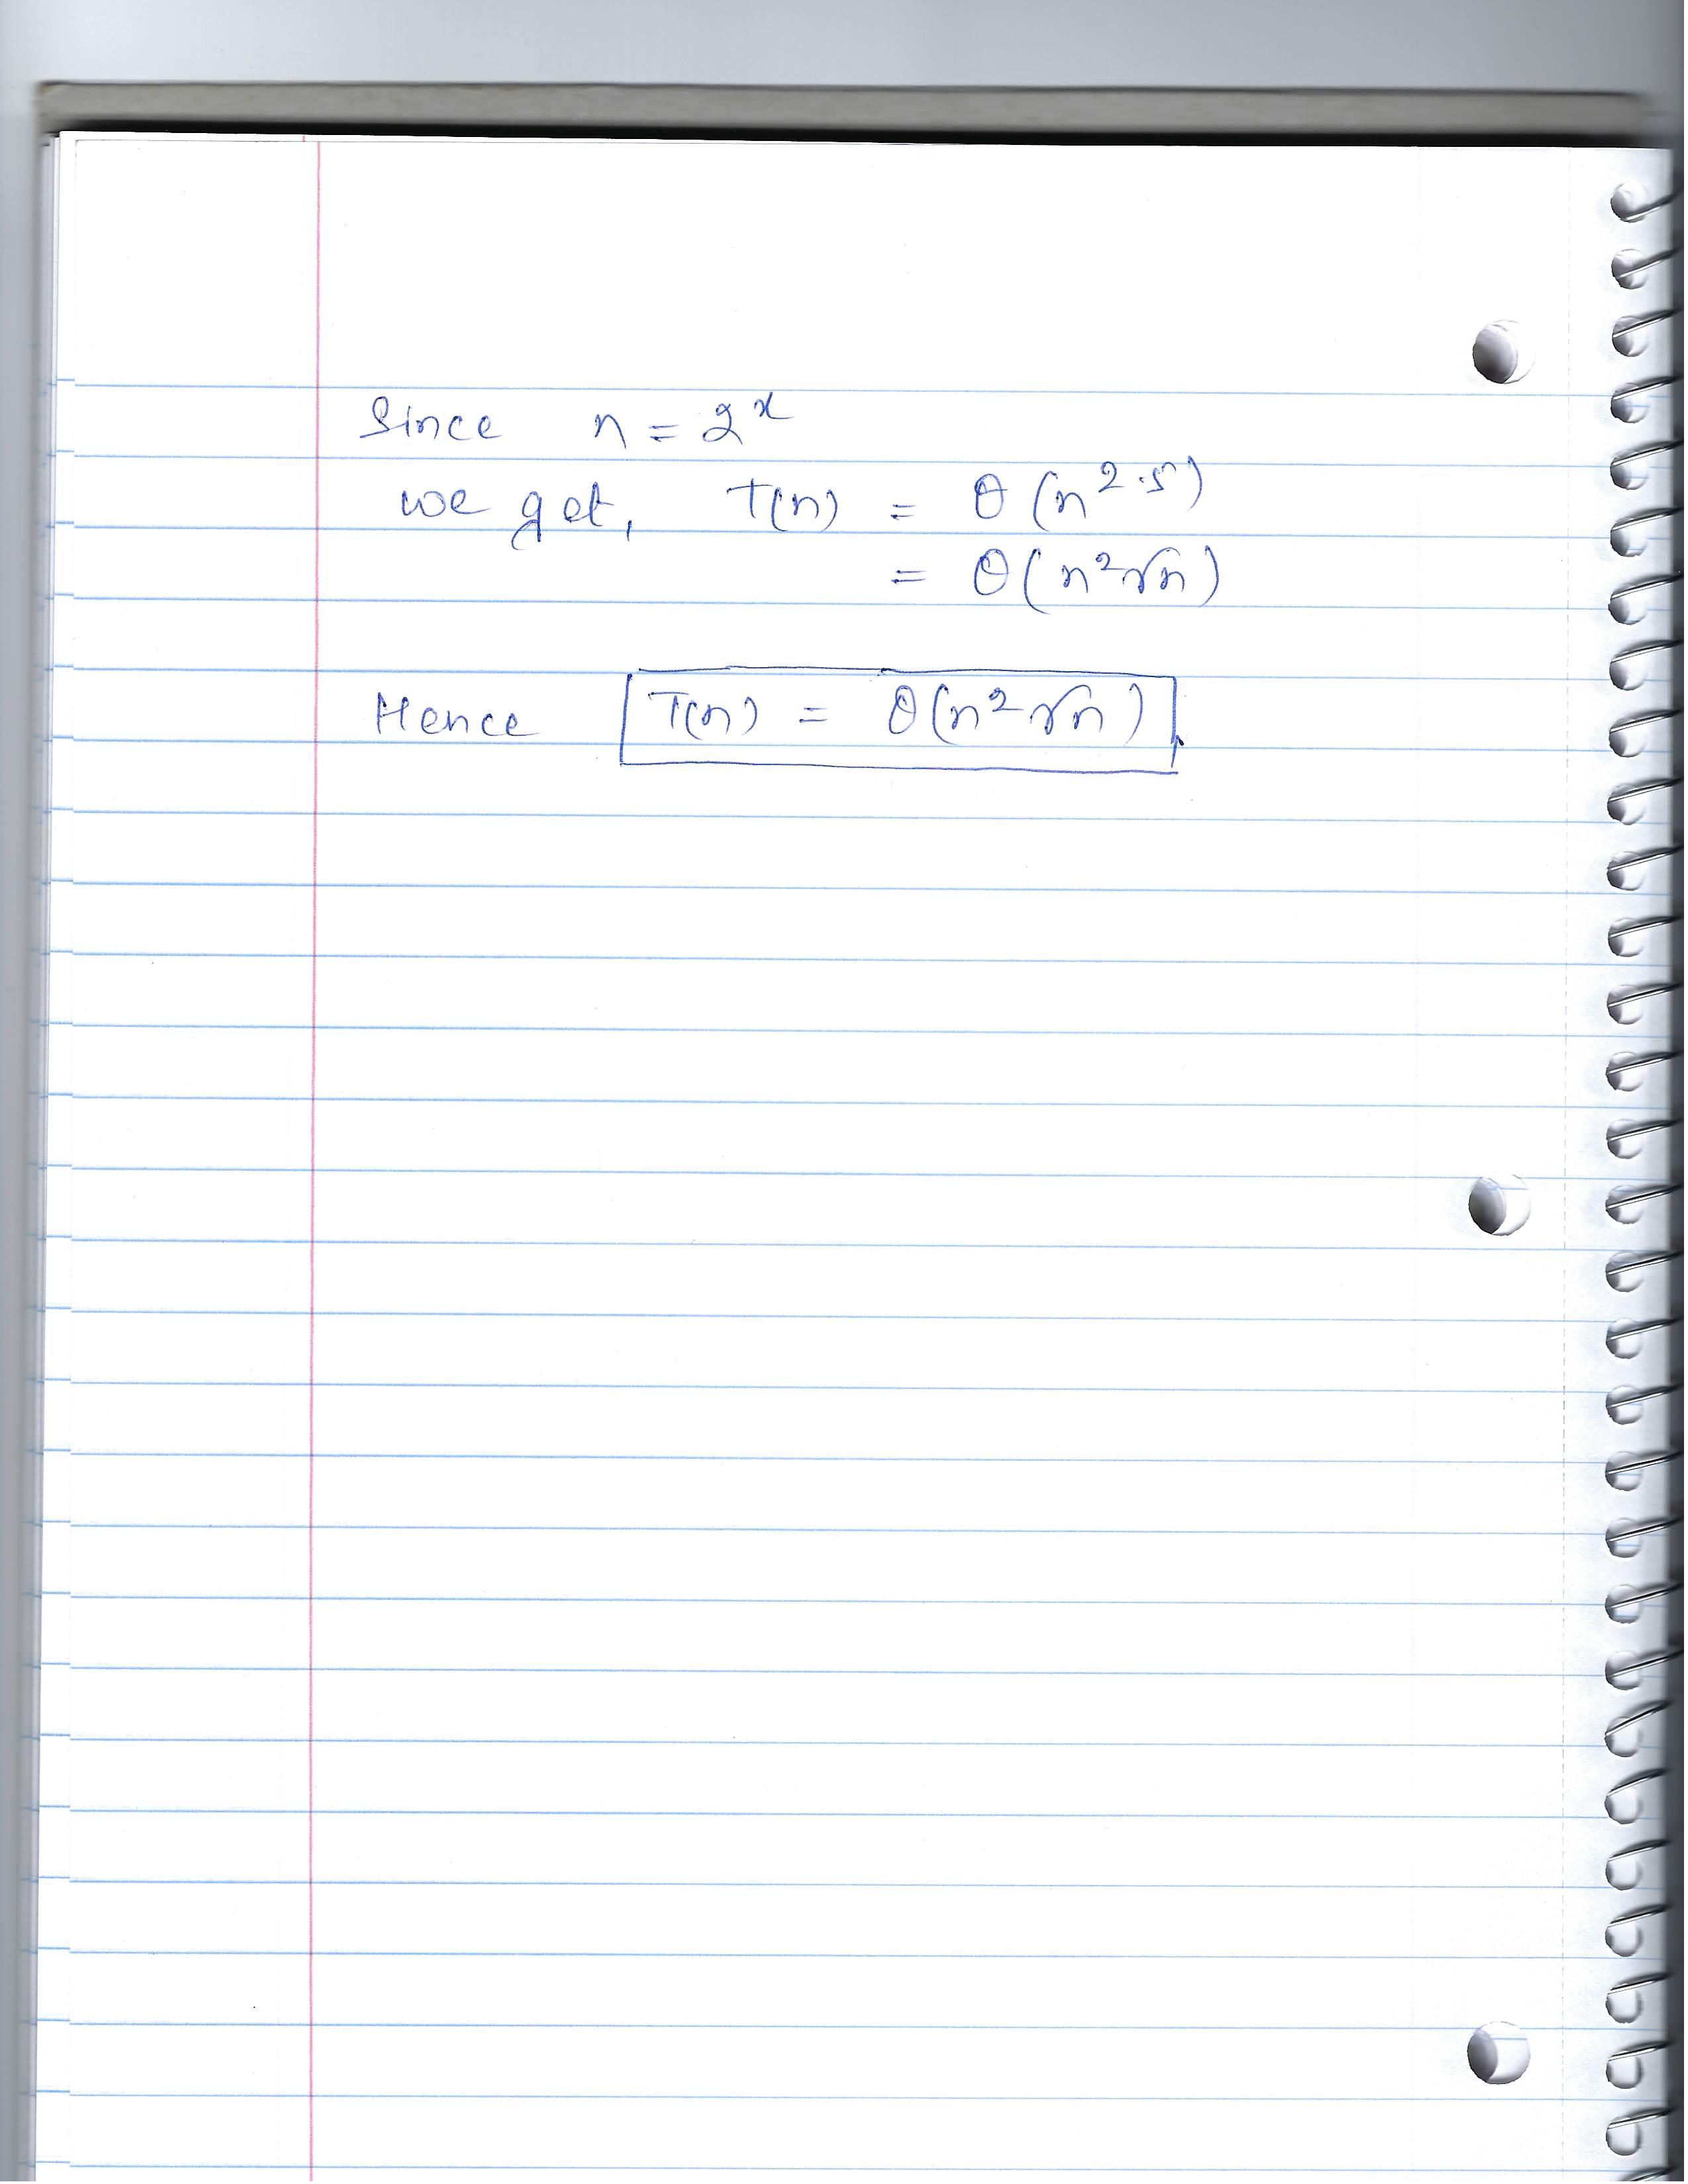 Since n = 2^x
we get, T(n) = θ(n^2.5)
= θ(n^2√n)
Hence T(n) = θ(n^2√n).